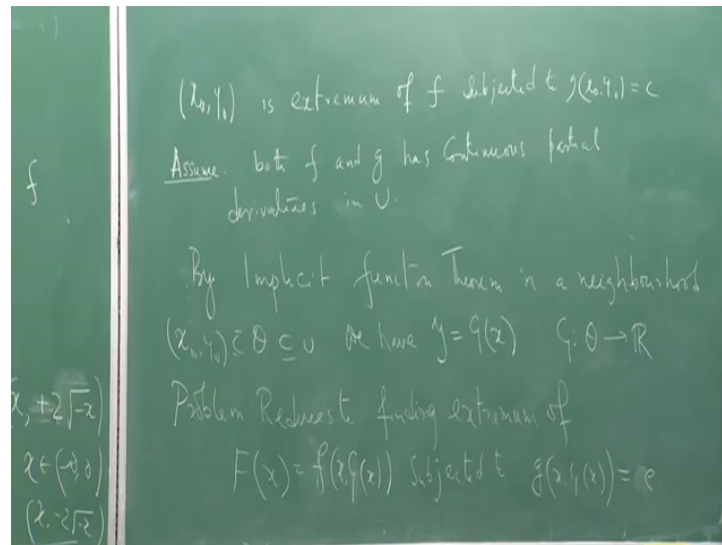 f
x, +2√-x)
x ∈ (-∞, 0)
(x, -2√-x)
(x₀, y₀) is extremum of f subjected to g(x₀, y₀) = c
Assume: both f and g has Continuous partial
derivatives in U.
By Implicit function Theorem in a neighbourhood
(x₀, y₀) ∈ θ ⊆ U we have y = G(x) G: θ → ℝ
Problem Reduces to finding extremum of
F(x) = f(x, G(x)) subjected to g(x, G(x)) = c